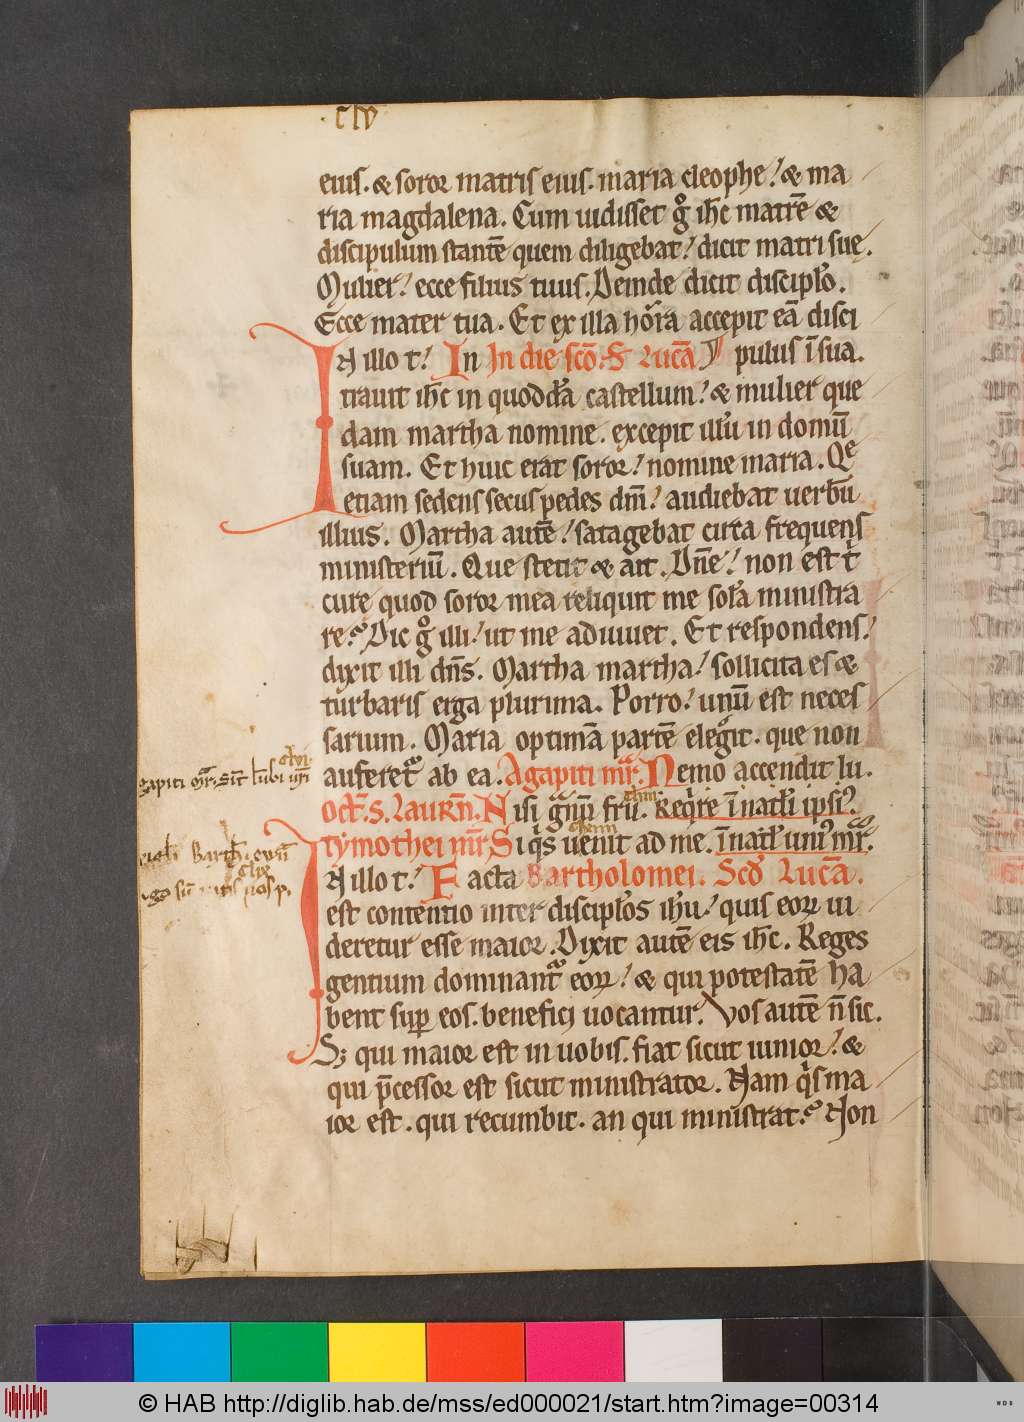 clv
eius. & soror matris eius. maria cleophe. & ma
ria magdalena. Cum uidisset gͦ ihc̄ matrē &
discipulum stantē quem diligebat. dicit matri sue.
Mulier. ecce filius tuus. Deinde dicit discipl̓o.
Ecce mater tua. Et ex illa hora accepit eā disci
pulus ī sua.
In illo t. In In die scō. S Lucā
trauit ihc̄ in quodda castellum. & mulier que
dam martha nomine. excepit illu in domū
suam. Et huic erat soror. nomine maria. Qͤ
etiam sedens secus pedes dn̄i. audiebat uerbū
illius. Martha autē. satagebat circa frequens
ministeriū. Que stetit & ait. Dn̄e. non est t
cure quod soror mea reliquit me sola ministra
re. Dic gͦ illi. ut me adiuuet. Et respondens.
dixit illi dn̄s. Martha martha. sollicita es &
turbaris erga plurima. Porro. unū est neces
sarium. Maria optimā partē elegit. que non
auferet ab ea. Agapiti mr̄. Nemo accendit lu.
Oct̄. S. Laurn̄. Nisi gnū fru. Reqͥre ī natl̓i ipsi.
Tymothei mr̄ Siqͥs uenit ad me. ī natl̓ uni mr̄.
In illo t. Facta Bartholomei. Scd Lucā.
est contentio inter discipl̓os ihu. quis eoꝝ ui
deretur esse maior. Dixit autē eis ihc̄. Reges
gentium dominant eoꝝ. & qui potestatē ha
bent suꝑ eos. benefici uocantur. Vos autē n̄ sic.
Sꝫ qui maior est in uobis. fiat sicut iunior. &
qui p̄cessor est sicut ministrator. Nam qͥs ma
ior est. qui recumbit. an qui ministrat. Non
© HAB http://diglib.hab.de/mss/ed000021/start.htm?image=00314